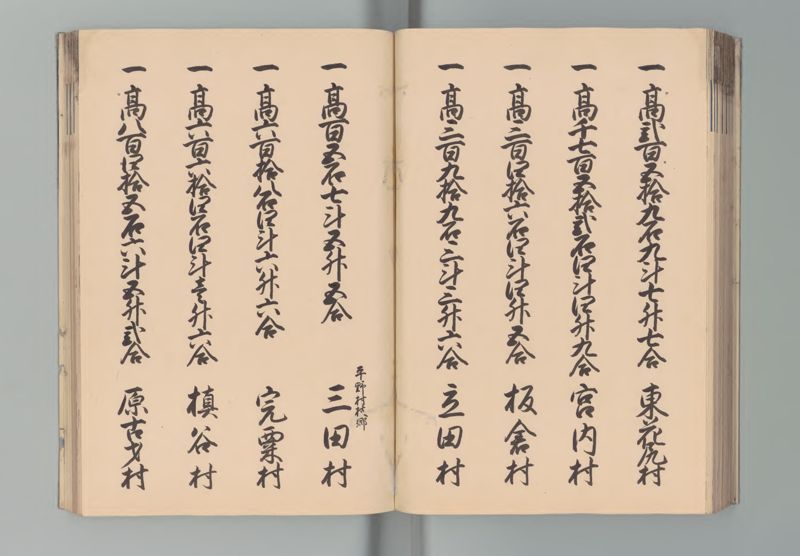 一 高弐百五拾九石九斗七升七合 東花尻村
一 高千七百五拾弐石四斗四升九合 宮内村
一 高三百四拾六石四斗四升五合 板倉村
一 高三百九拾九石三斗三升六合 立田村
一 高百五石七斗五升五合 平野村枝郷 三田村
一 高六百拾八石四斗六升六合 宍粟村
一 高六百六拾四石四斗壱升六合 槙谷村
一 高八百四拾五石六斗五升弐合 原古才村